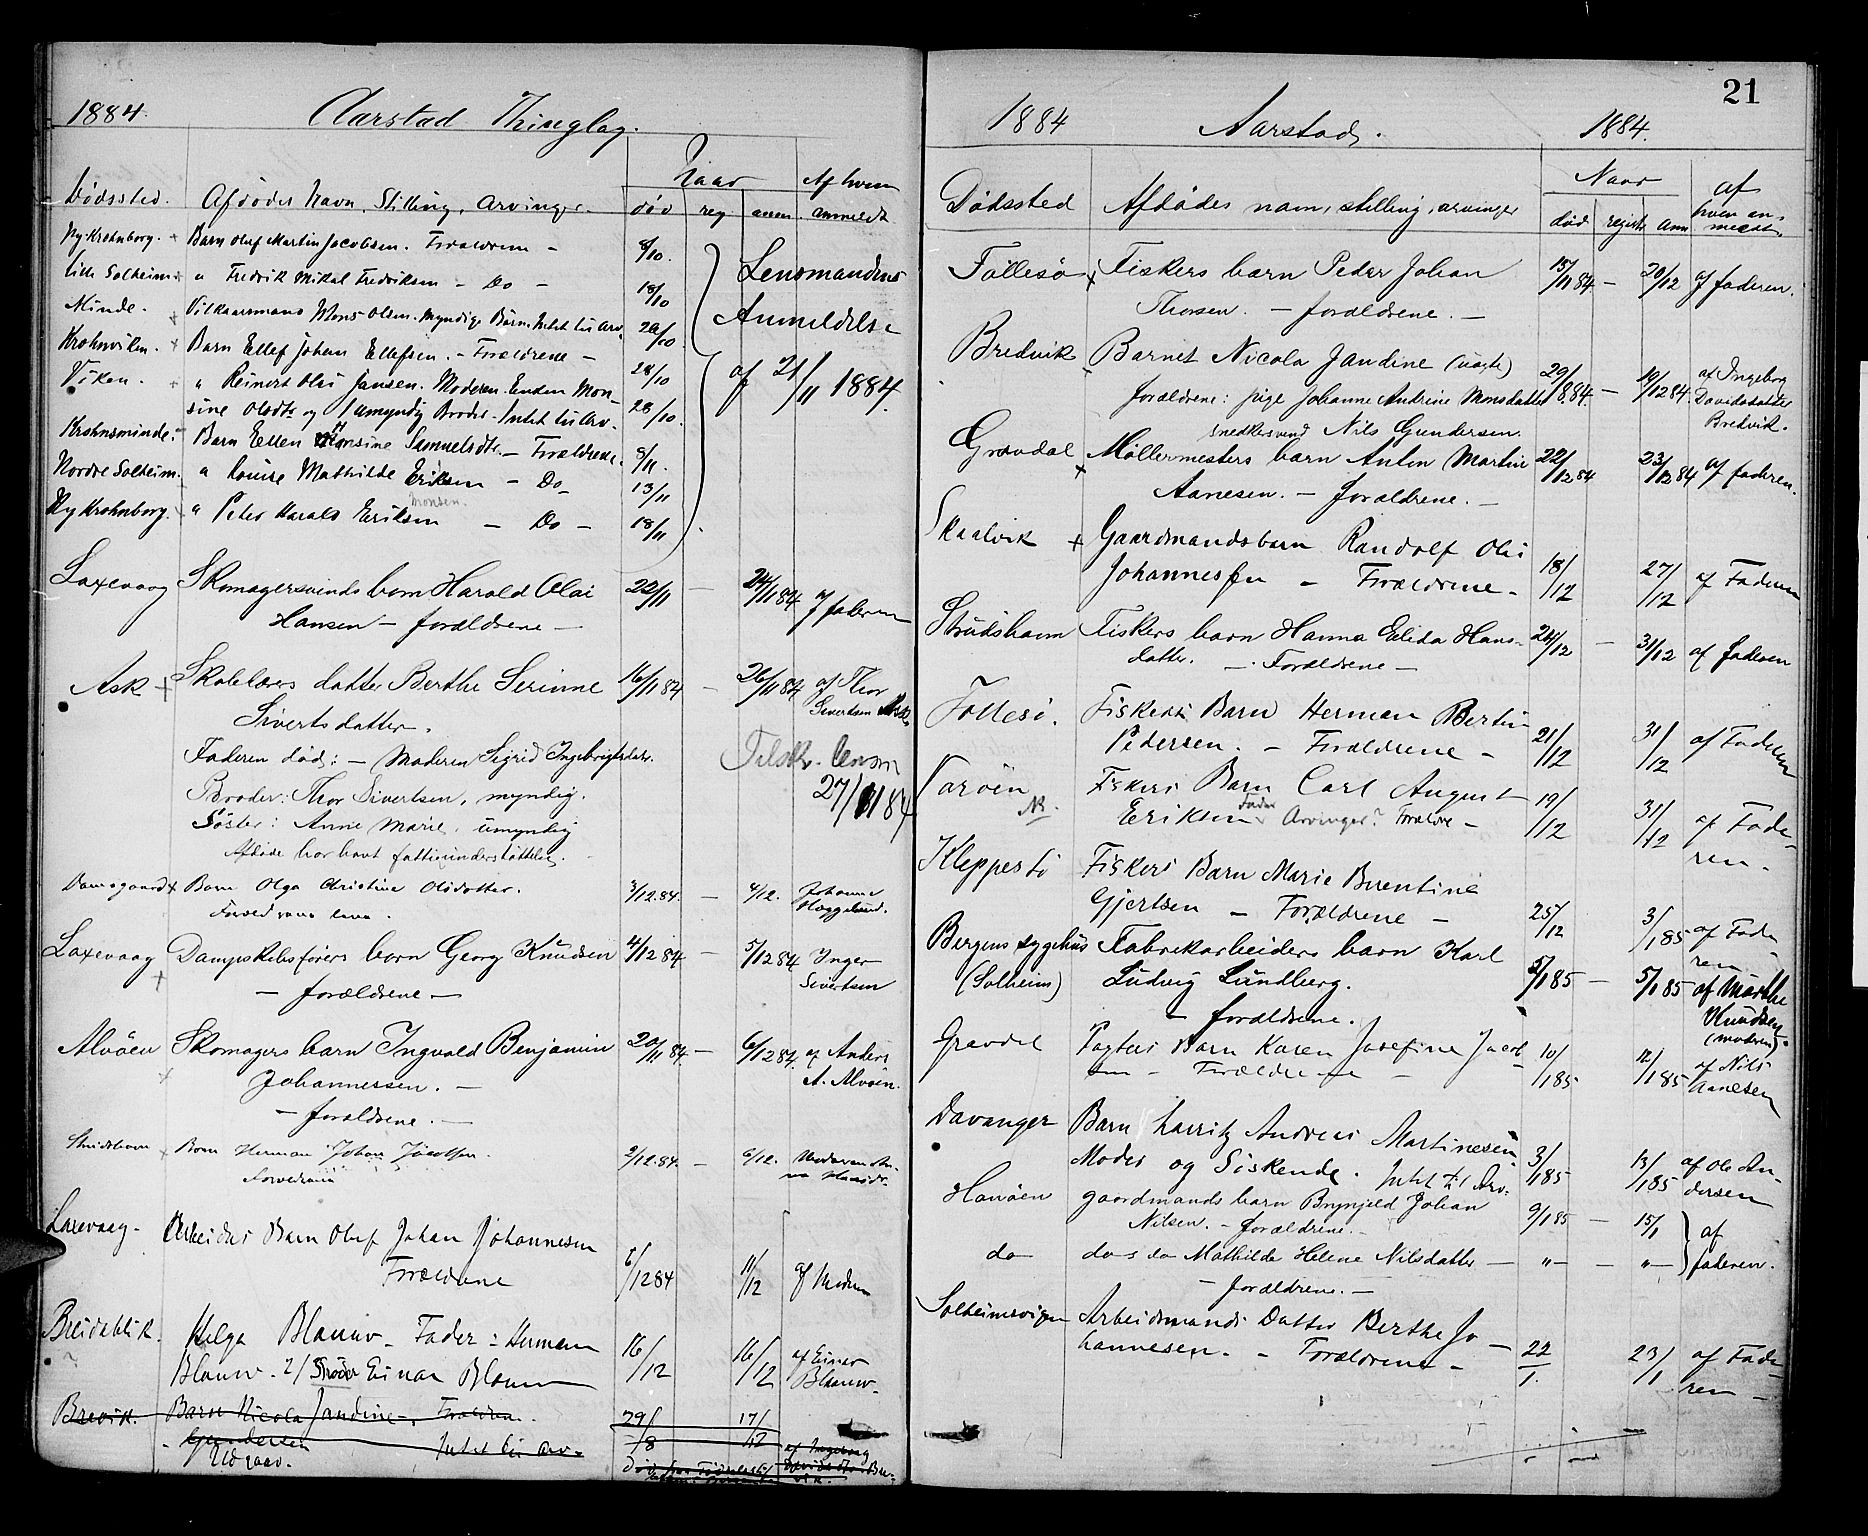 1884. Aarstad Thinglag.
Naar Af hvem
Dødssted. Afdødes Navn, Stilling, Arvinger. død reg anm. anmeldt
Ny Krohnborg. + Barn Oluf Martin Jacobsen. Forældrene - 8/10.
Lille Solheim + " Fredrik Mikal Fredriksen - Do - 18/10 Lensmandens
Minde. + Vilkaarsmand Mons Olsen. Myndige Børn. Intet til Arv. 20/10 Anmeldelse
Krohnviken. + Barn Ellef Johan Ellefsen. - Forældrene - 28/10
Viken. + " Reinert Olai Jansen. Moderen Enken Mon- af 21/11 1884.
sine Olsdtr og 1 umyndig Broder - Intet til Arv - 28/10.
Krohnsminde. Barn Ellen Monsine Samuelsdtr. - Forældrene. 8/11.
Nordre Solheim. " Louise Mathilde Eriksen - Do - 13/11
Monsen.
Ny Krohnborg. " Peter Harald Eriksen - Do - 18/11
Laxevaag Skomagersvends barn Harald Olai 22/11 - 24/11 84 af faderen
Hansen - forældrene -
Ask + Skolelærers datter Berthe Serinne 16/11 84 - 26/11 84 af Thor
Sivertsdatter. Sivertsen Ask
Faderen død: - Moderen Sigrid Ingebrigtsdatr.
Broder: Thor Sivertsen, myndig. 27/11 84
Søster: Anne Marie, umyndig
Afdøde har havt fattigunderstøttelse.
Damsgaard + Barn Olga Christine Olsdatter. 3/12.84. - 4/12. Johanne
Forældrene leve.
Laxevaag + Dampskibsførers barn Georg Knudsen 4/12 84 - 5/12 84 Inger
- forældrene - Sivertsen
Alvøen + Skomagers barn Ingvald Benjamin 20/11 84 - 6/12 84. af Anders
Johannessen. - A. Alvøen.
- forældrene. -
Strudshavn + Barn Herman Johan Jacobsen. 2/12.84. - 6/12. Moderen
Forældrene
Laxevaag - Arbeiders Barn Oluf Johan Johannesen
Forældrene 8/12 84 11/12 af Moderen
Breidablik. Helga Blauuw - Fader: Herman 16/12 16/12 af Einar
Blauuw. 2/ Broder Einar Blauuw Blaauw.
Brevik. Barn Nicola Jandine -. Forældrene. 29/8 17/12
Gundersen Intet til Arv - af Ingeborg
Udgaar.
21
1884 Aarstad. 1884.
Naar af
Dødssted Afdødes navn, stilling, arvinger død registr anm hvem an-
meldt.
Follesø + Fiskers barn Peder Johan 15/11 84 - 20/12 af faderen.
Thorsen. - forældrene. -
Bredvik Barnet Nicola Jandine (uægte) 29/8.84. - 19/12 84. af Ingeborg
forældrene: pige Johanne Andrine Monsdatter Davidsdatter
snedkersvend Nils Gundersen. Bredvik.
Gravdal + Møllermesters barn Anton Martin 22/12 84 23/12 84 af faderen.
Aanesen. - forældrene. -
Skaalvik + Gaardmandsbarn Randolf Olai
Johannessen - Forældrene - 18/12 27/12 af Faderen
Strudshavn Fiskers barn Hanna Elida Hans- 24/12 - 31/12 af faderen
datter. - Forældrene -
Follesø. Fiskers Barn Herman Bertin
Pedersen. - Forældrene - 21/12 31/12 af Faderen
Fiskers Barn Carl August 19/12 31/12 af Fade-
Eriksen Arvinger? Forældre - ren -
Kleppestø Fiskers Barn Marie Berentine
Gjertsen - Forældrene - 25/12 3/1 85 af Fade
ren -
Bergens sygehus Fabrikarbeiders barn Karl
(Solheim) Ludvig Lundberg. 2/1 85 - 5/1 85 af Marthe
- forældrene. Knudsen
(moderen).
Gravdal Pagters Barn Karen Josefine Jacob
sen - Forældrene - 10/1 85 12/1 85 af Nils
Aanesen
Davanger Barn Lauritz Andreas Martinesen.
Moder og Søskende. Intet til Arv. 3/1 85 13/1 85 af Ole An
dersen
Hanøen gaardmands barn Brynjeld Johan 9/1 85 - 15/1 af
Nilsen. - forældrene. -
do do s do Mathilde Helene Nilsdatter - "- - "- faderen.
- forældrene. -
Solheimsvigen Arbeidsmands Datter Berthe Jo -
hannesen. - Forældrene - 22/1. 23/1 af Fade
ren -